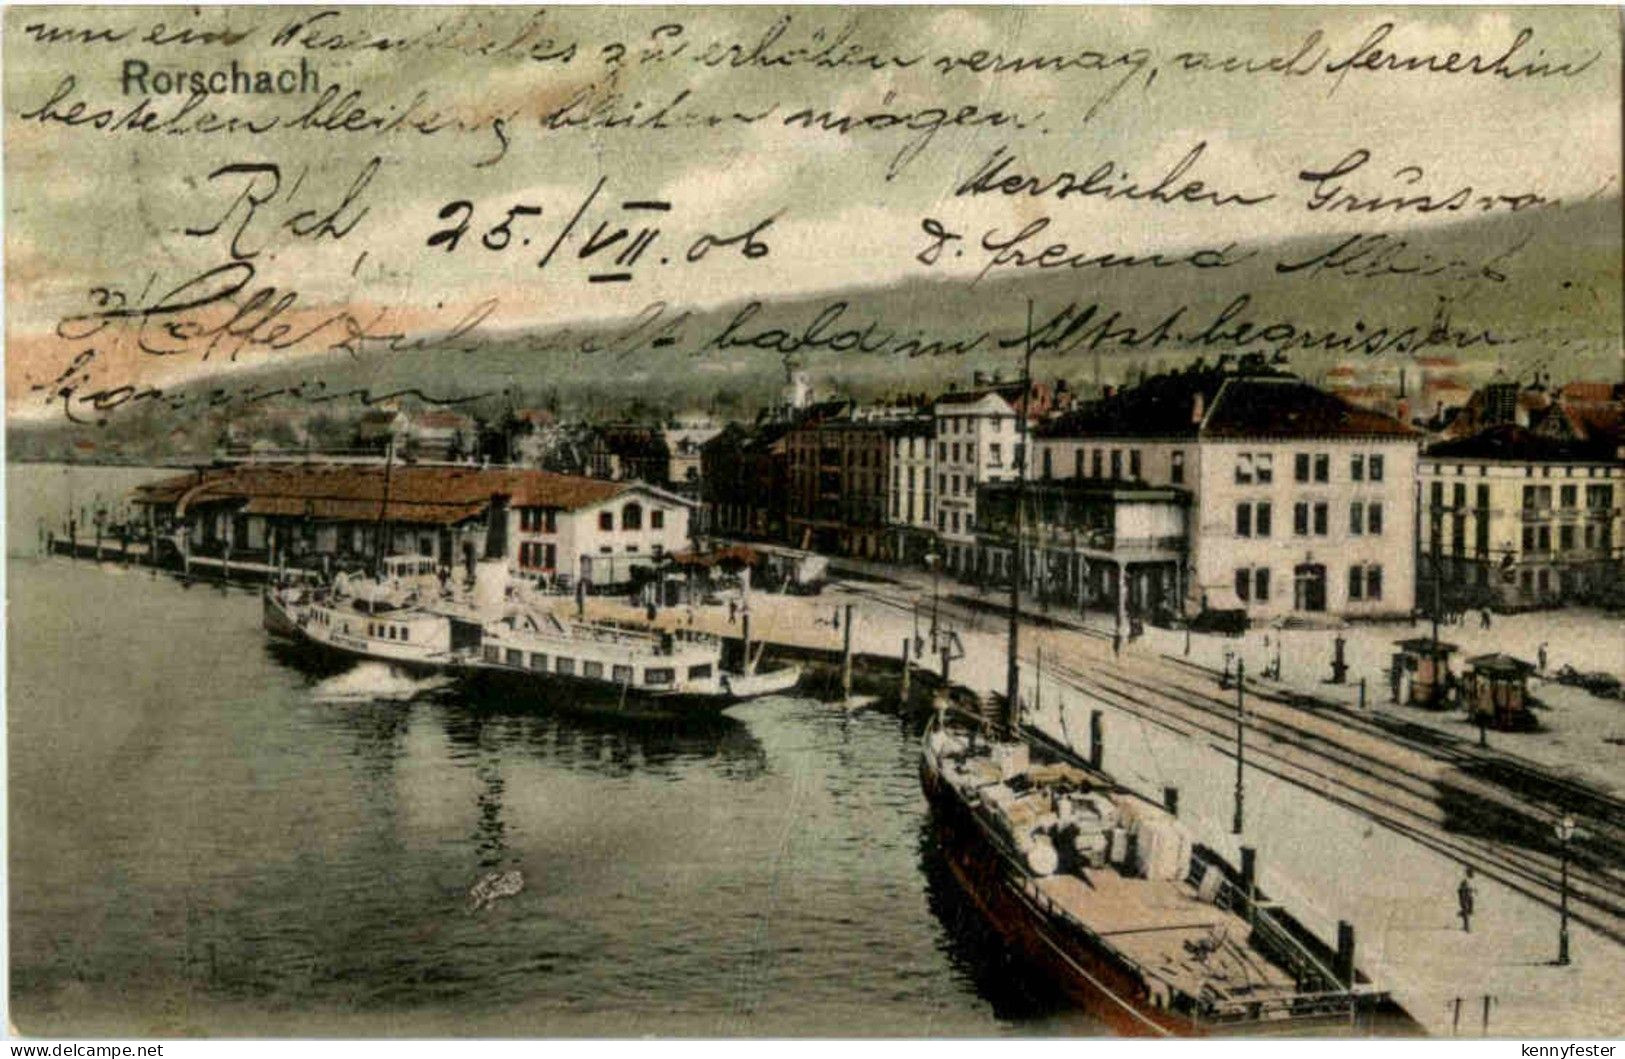 um ein Wesentliches zu erhöhen vermag, auch fernerhin
Rorschach
bestehen bleiben mögen.
Herzlichen Gruss von
R'ch, 25./VII.06
D. freund Albin
Hoffe Dich recht bald in Altst. begrüssen
können
kennyfester
delcampe.net